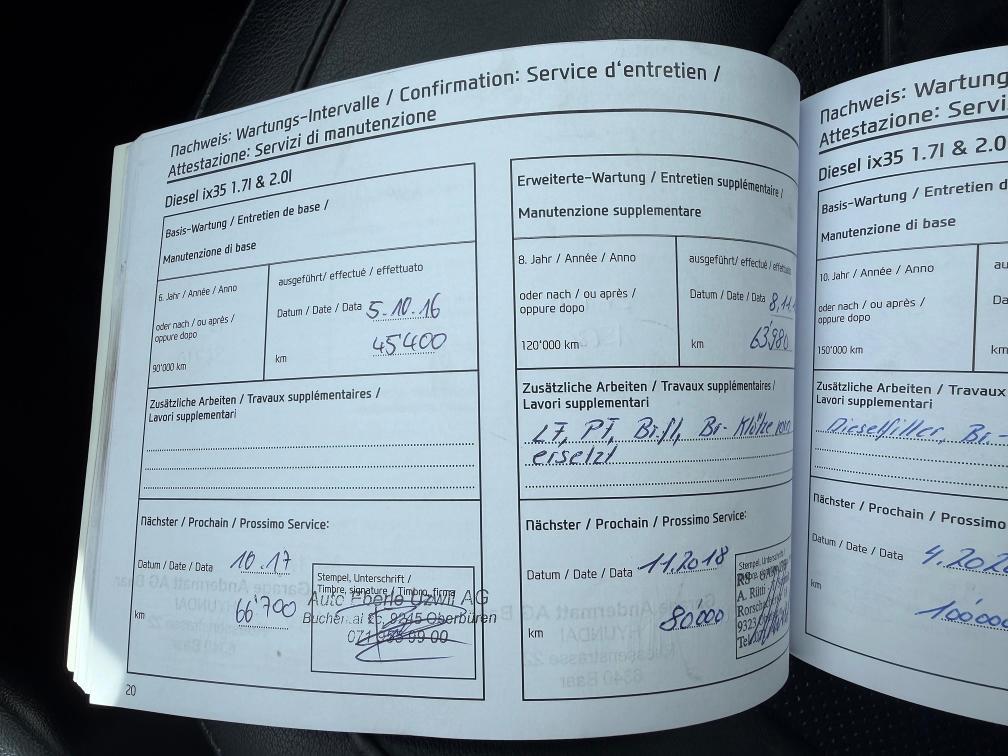 Nachweis: Wartungs-Intervalle / Confirmation: Service d'entretien /
Attestazione: Servizi di manutenzione
Diesel ix35 1.7l & 2.0l
Basis-Wartung / Entretien de base /
Manutenzione di base
6. Jahr / Année / Anno
oder nach / ou après /
oppure dopo
90'000 km
ausgeführt / effectué / effettuato
Datum / Date / Data 5.10.16
km 45'400
Zusätzliche Arbeiten / Travaux supplémentaires /
Lavori supplementari
Nächster / Prochain / Prossimo Service:
Datum / Date / Data 10.17
km 66'700
Stempel, Unterschrift /
Timbre, signature / Timbro, firma
Auto Eberle Uzwil AG
9245 Oberbüren
20
Erweiterte-Wartung / Entretien supplémentaire /
Manutenzione supplementare
8. Jahr / Année / Anno
oder nach / ou après /
oppure dopo
120'000 km
ausgeführt / effectué / effettuato
Datum / Date / Data 8.11.
km 63'980
Zusätzliche Arbeiten / Travaux supplémentaires /
Lavori supplementari
LF, PF, Br.fl, Br-Klötze
ersetzt
Nächster / Prochain / Prossimo Service:
Datum / Date / Data 11.2018
km 80'000
Stempel, Unterschrift /
RS
A. Rüth
Rorscha
9323
Tel
Nachweis: Wartung
Attestazione: Servi
Diesel ix35 1.7l & 2.0
Basis-Wartung / Entretien d
Manutenzione di base
10. Jahr / Année / Anno
oder nach / ou après /
oppure dopo
150'000 km
au
Da
km
Zusätzliche Arbeiten / Travaux
Lavori supplementari
Dieselfilter, Br.-
Nächster / Prochain / Prossimo
Datum / Date / Data 4.202
km 100'000